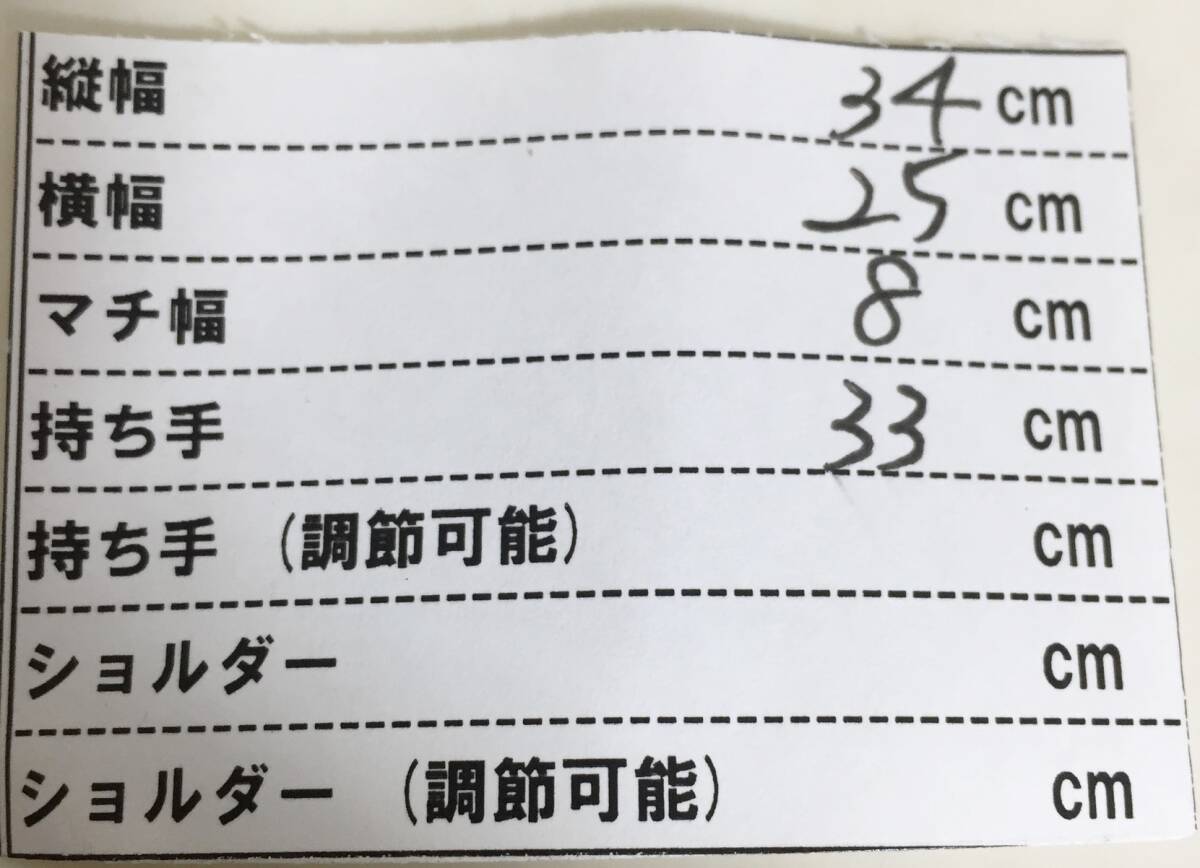 縦幅 34 cm
横幅 25 cm
マチ幅 8 cm
持ち手 33 cm
持ち手 (調節可能) cm
ショルダー cm
ショルダー (調節可能) cm